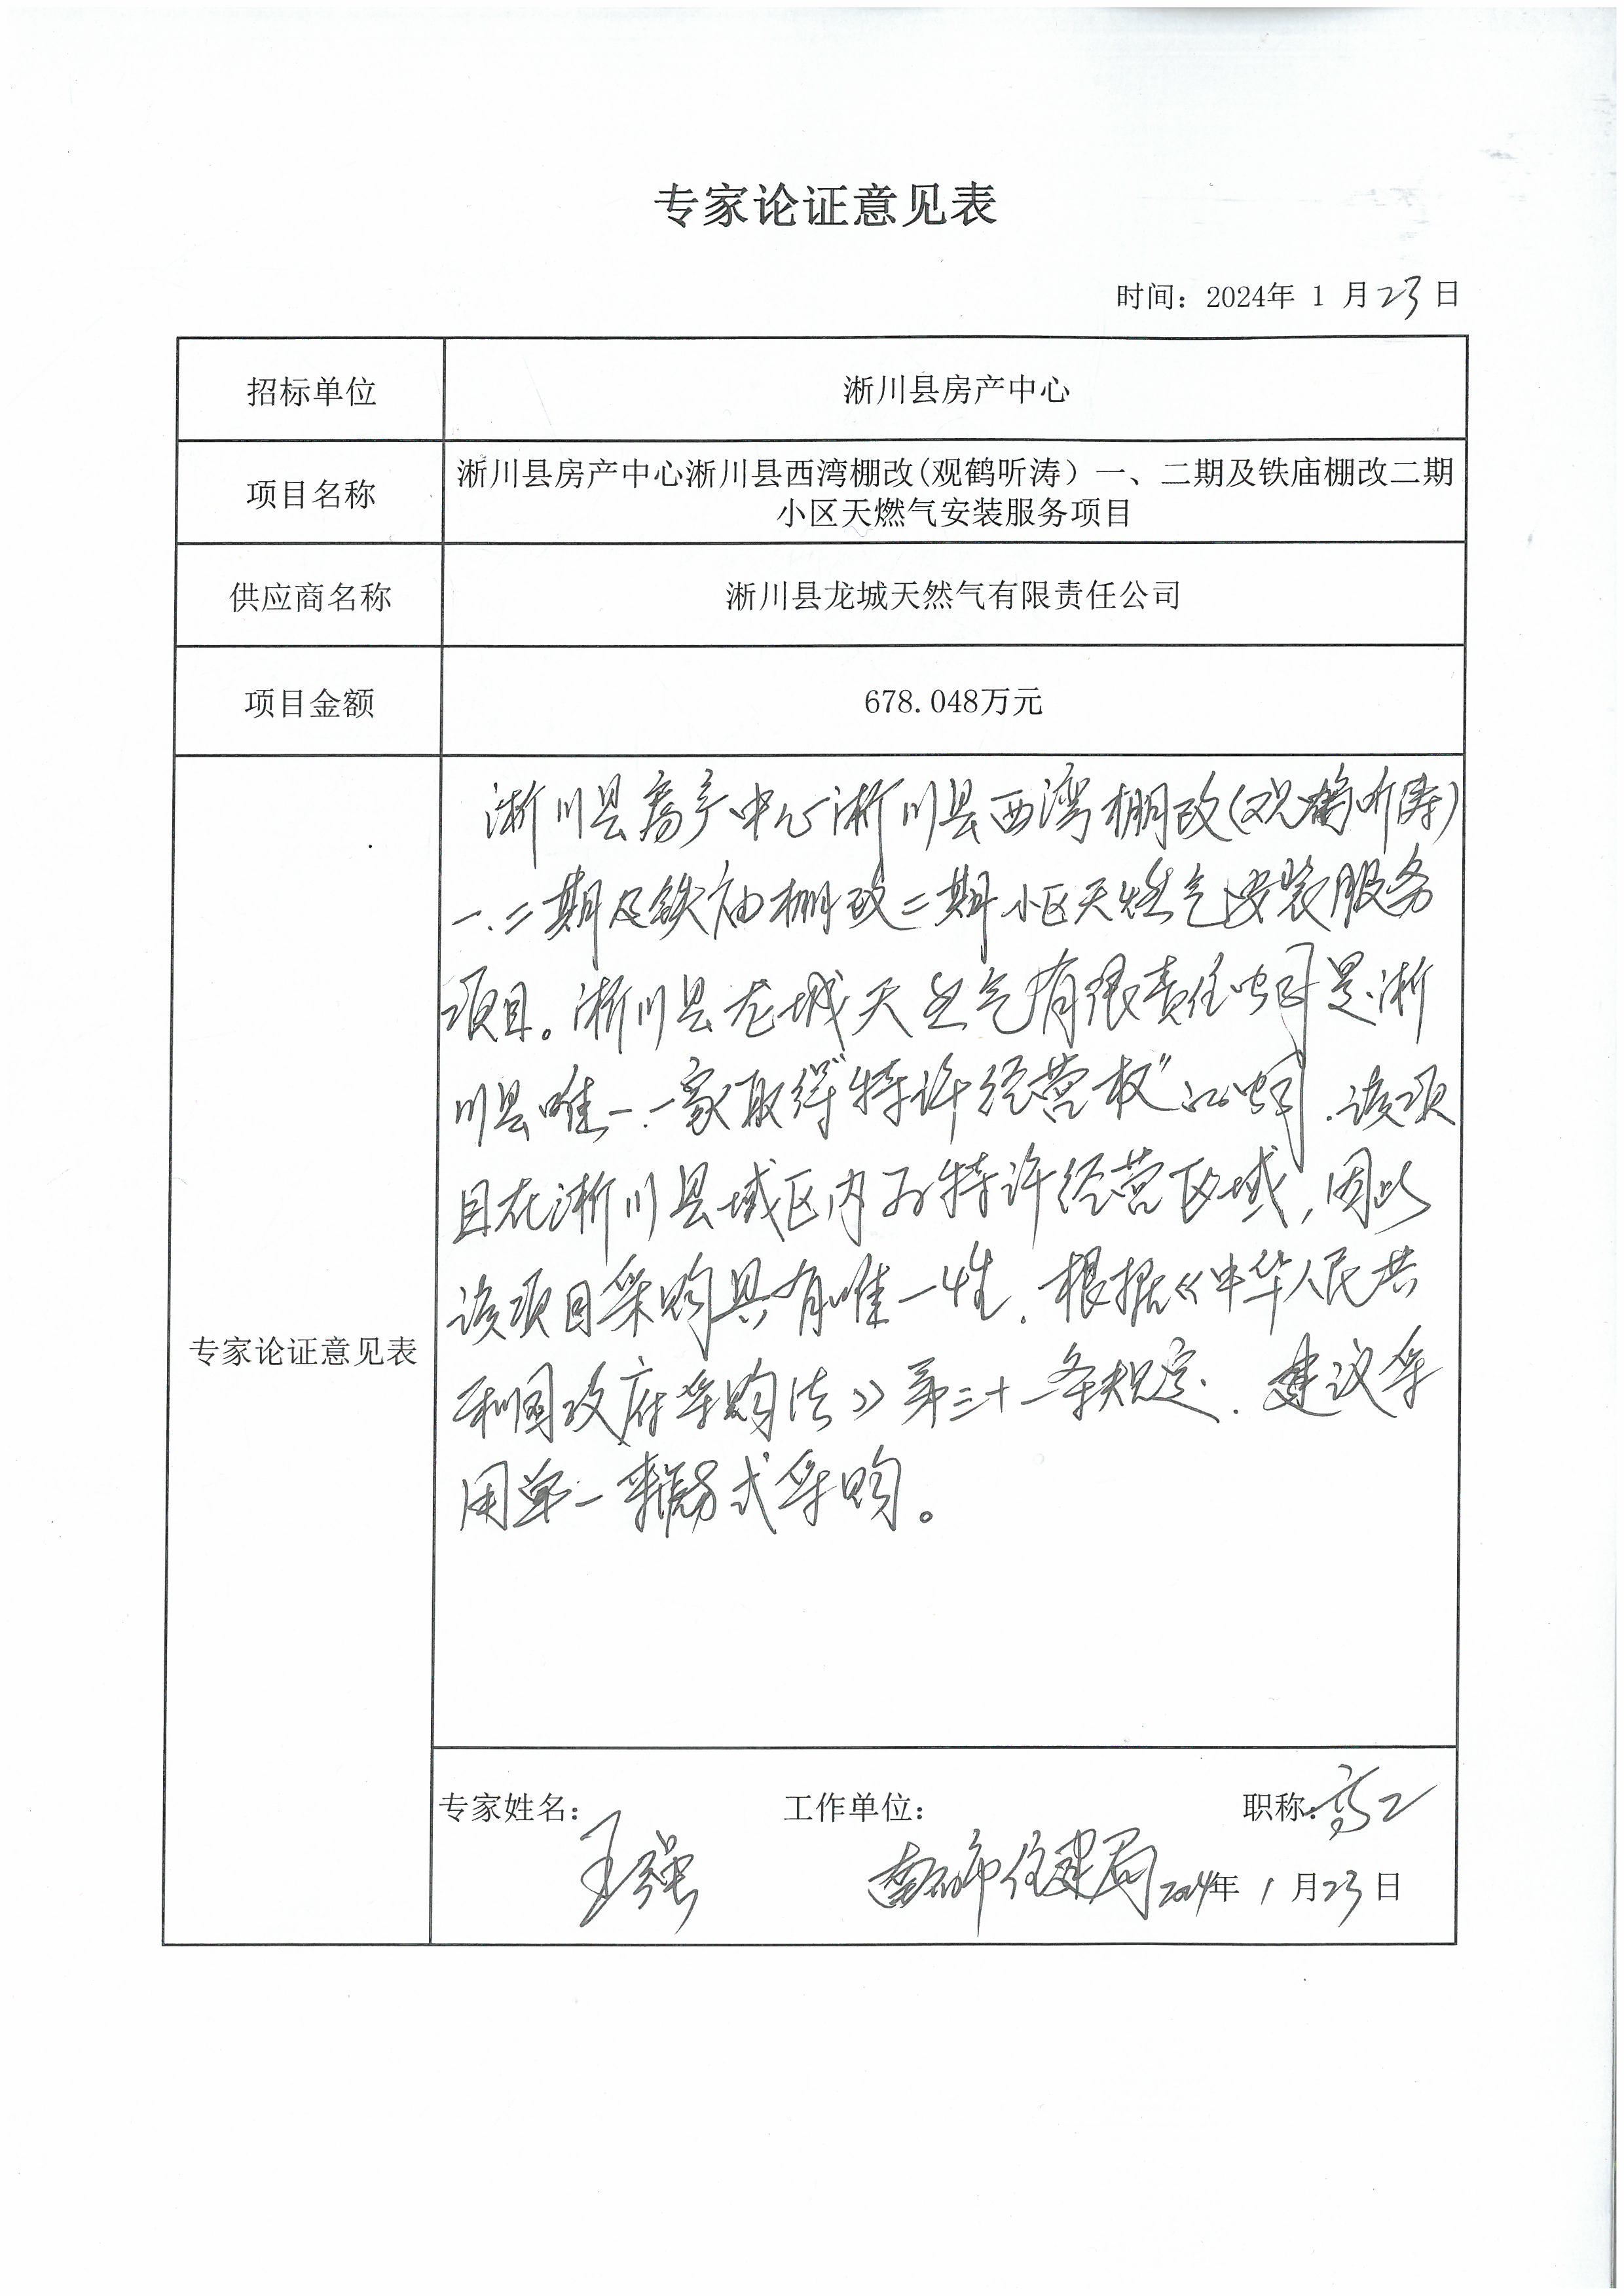 专家论证意见表
时间：2024年 1 月 23 日
招标单位
淅川县房产中心
项目名称
淅川县房产中心淅川县西湾棚改(观鹤听涛）一、二期及铁庙棚改二期
小区天燃气安装服务项目
供应商名称
淅川县龙城天然气有限责任公司
项目金额
678.048万元
专家论证意见表
淅川县房产中心淅川县西湾棚改(观鹤听涛)
一.二期及铁庙棚改二期小区天燃气安装服务
项目。淅川县龙城天然气有限责任公司是淅
川县唯一一家取得"特许经营权"的公司.该项
目在淅川县城区内为特许经营区域,因此
该项目采购具有唯一性.根据《中华人民共
和国政府采购法》第三十一条规定.建议采
用单一来源方式采购。
专家姓名： 工作单位： 职称：高工
王强 南阳市住建局 2024年 1 月 23 日